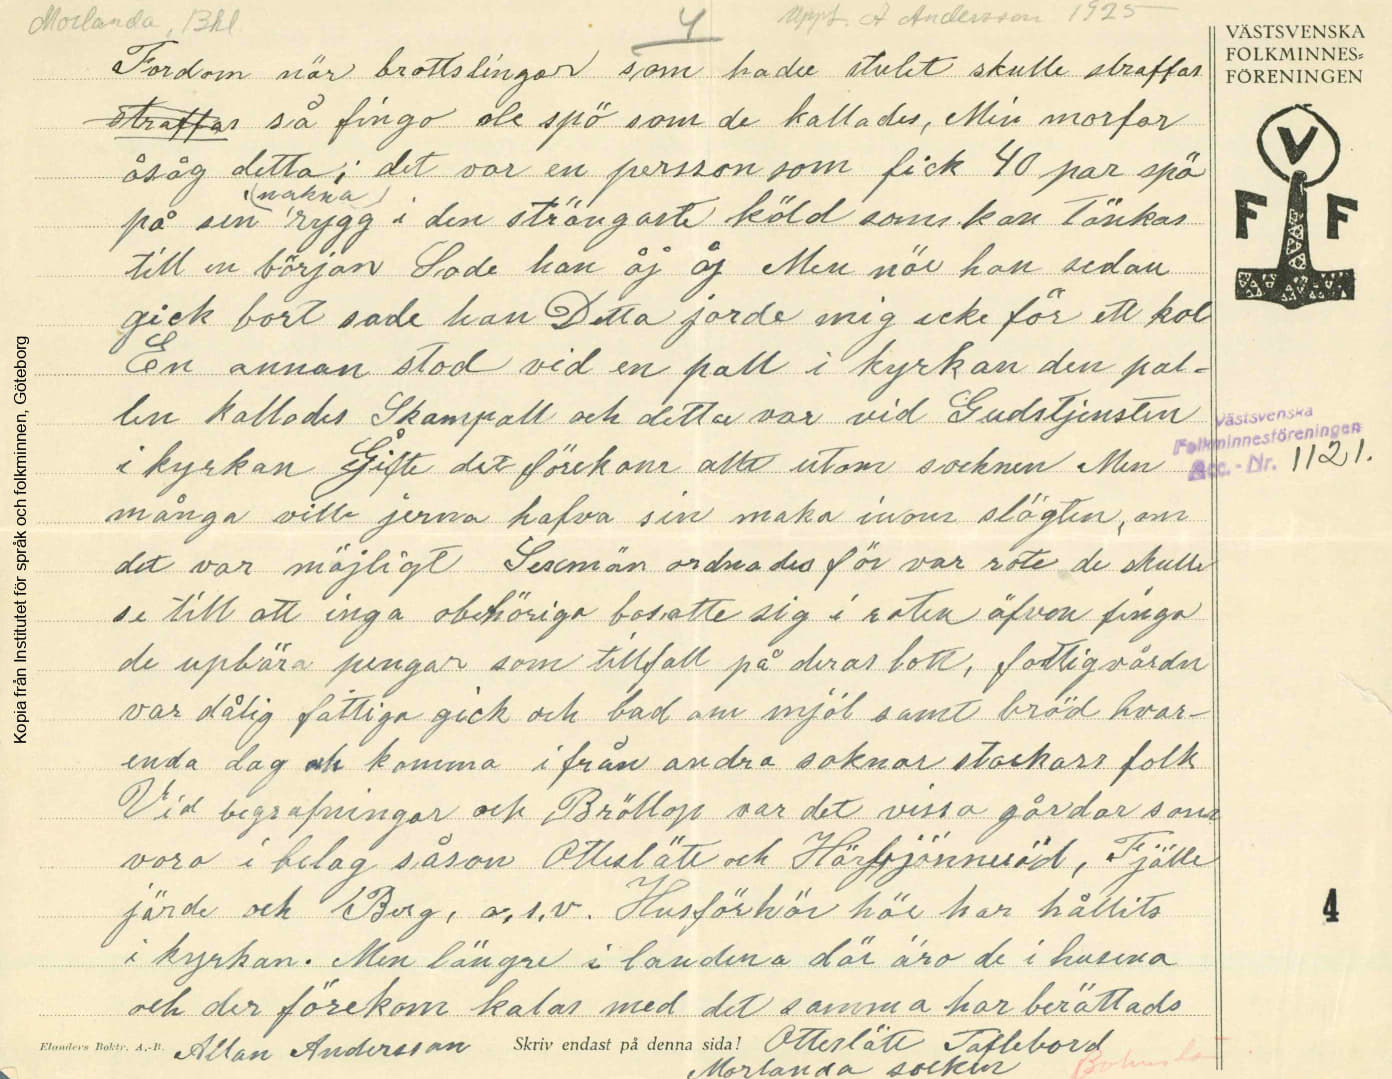 Morlanda, Bhl.
4
Uppt. A Andersson 1925
VÄSTSVENSKA
FOLKMINNES=
FÖRENINGEN
V
F F
Fordom när brottslingar som hade stulit skulle straffas
straffas så fingo de spö som de kallades, Min morfar
åsåg detta; det var en persson som fick 40 par spö
(nakna)
på sin rygg i den strängaste köld som kan tänkas
till en början Sade han åj åj Men när han sedan
gick bort sade han Detta jorde mig icke för ett kol
En annan stod vid en pall i kyrkan den pal-
len kallades Skampall och detta var vid Gudstjensten
i kyrkan Gifte det förekom allt utom socknen Men
många ville jerna hafva sin maka inom slägten, om
det var möjligt Sexmän ordnades för var rote de skulle
se till att inga obehöriga bosatte sig i roten äfven fingo
de upbära pengar som tillfall på deras lott, fattigvårdn
var dålig fattiga gick och bad om mjöl samt bröd hvar-
enda dag och komma ifrån andra soknar stackars folk
Vid begrafningar och Bröllop var det vissa gårdar som
voro i belag såson Ottesläte och Härfjönneröd, Fjälle
järde och Berg, o,s,v. Husförhör här har hållits
i kyrkan. Men längre i landena där äro de i husena
och der förekom kalas med det samma har berättads
Elanders Boktr. A.-B.
Allan Andersson
Skriv endast på denna sida!
Ottesläte Taflebord
Morlanda socken
Bohuslän
Västsvenska
Folkminnesföreningen
Acc.-Nr. 1121.
4
Kopia från Institutet för språk och folkminnen, Göteborg